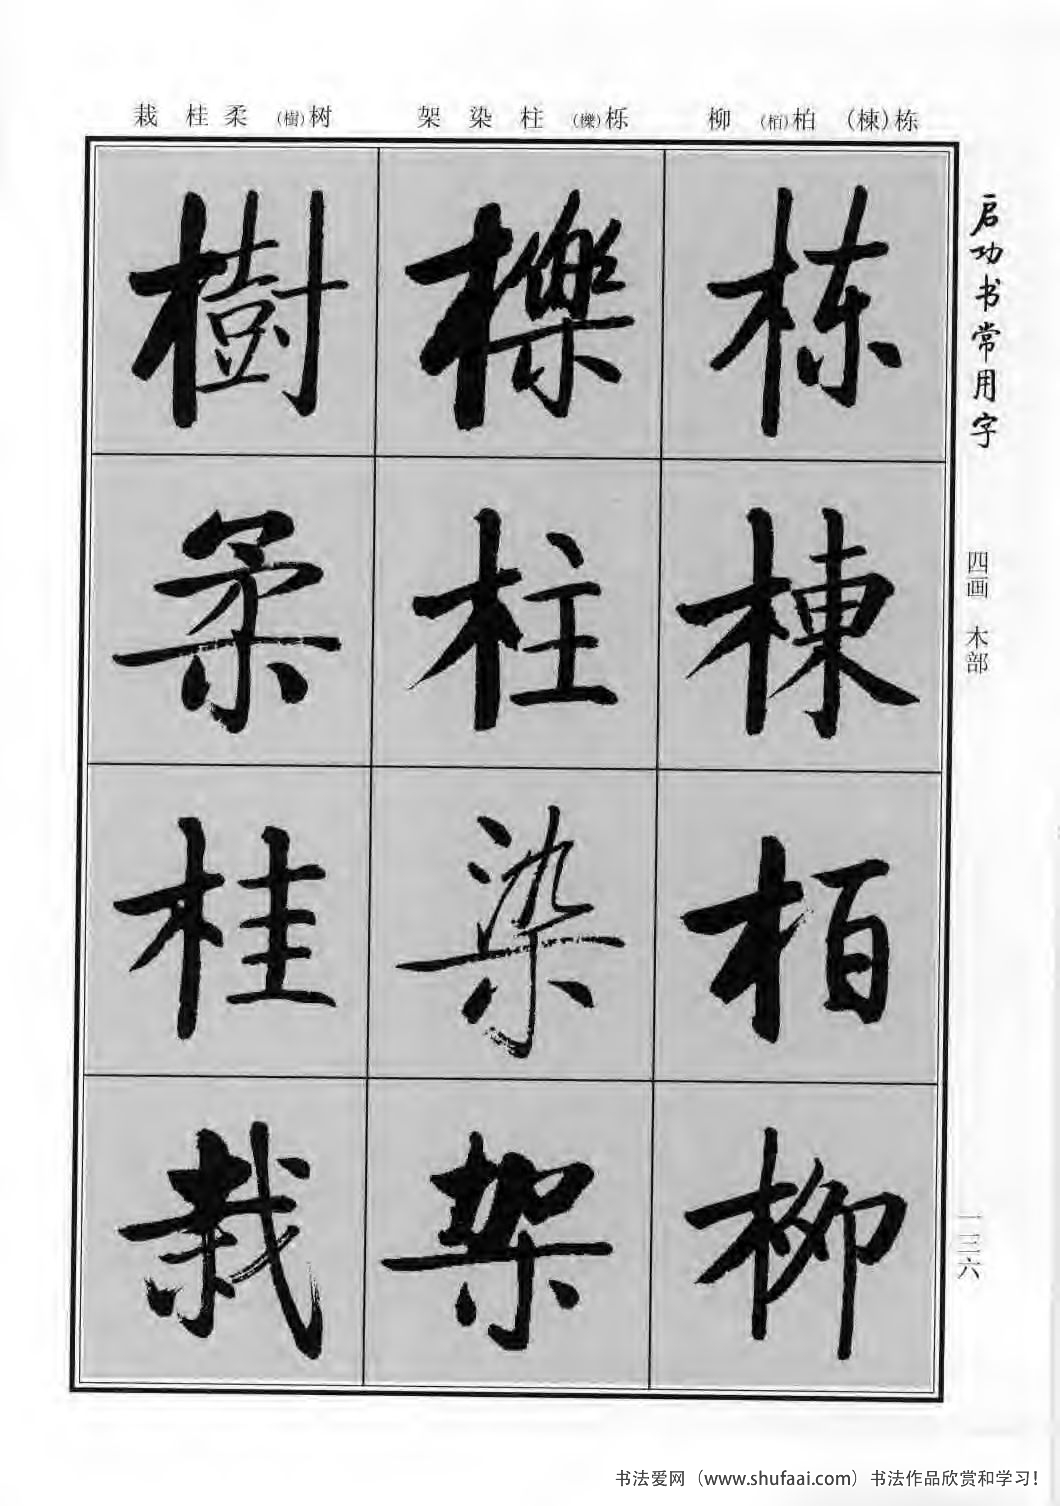 栽 桂 柔 (樹)树 架 染 柱 (櫟)栎 柳 (栢)柏 (棟)栋
启功书常用字
四画 木部
一三六
栋
棟
栢
柳
櫟
柱
染
架
樹
柔
桂
栽
书法爱网（www.shufaai.com）书法作品欣赏和学习！